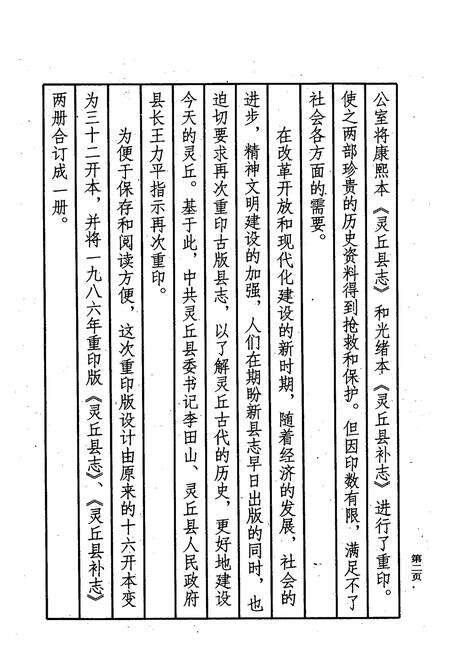 公室将康熙本《灵丘县志》和光绪本《灵丘县补志》进行了重印。
使之两部珍贵的历史资料得到抢救和保护。但因印数有限，满足不了
社会各方面的需要。
在改革开放和现代化建设的新时期，随着经济的发展，社会的
进步，精神文明建设的加强，人们在期盼新县志早日出版的同时，也
迫切要求再次重印古版县志，以了解灵丘古代的历史，更好地建设
今天的灵丘。基于此，中共灵丘县委书记李田山、灵丘县人民政府
县长王力平指示再次重印。
为便于保存和阅读方便，这次重印版设计由原来的十六开本变
为三十二开本，并将一九八六年重印版《灵丘县志》、《灵丘县补志》
两册合订成一册。
第二页